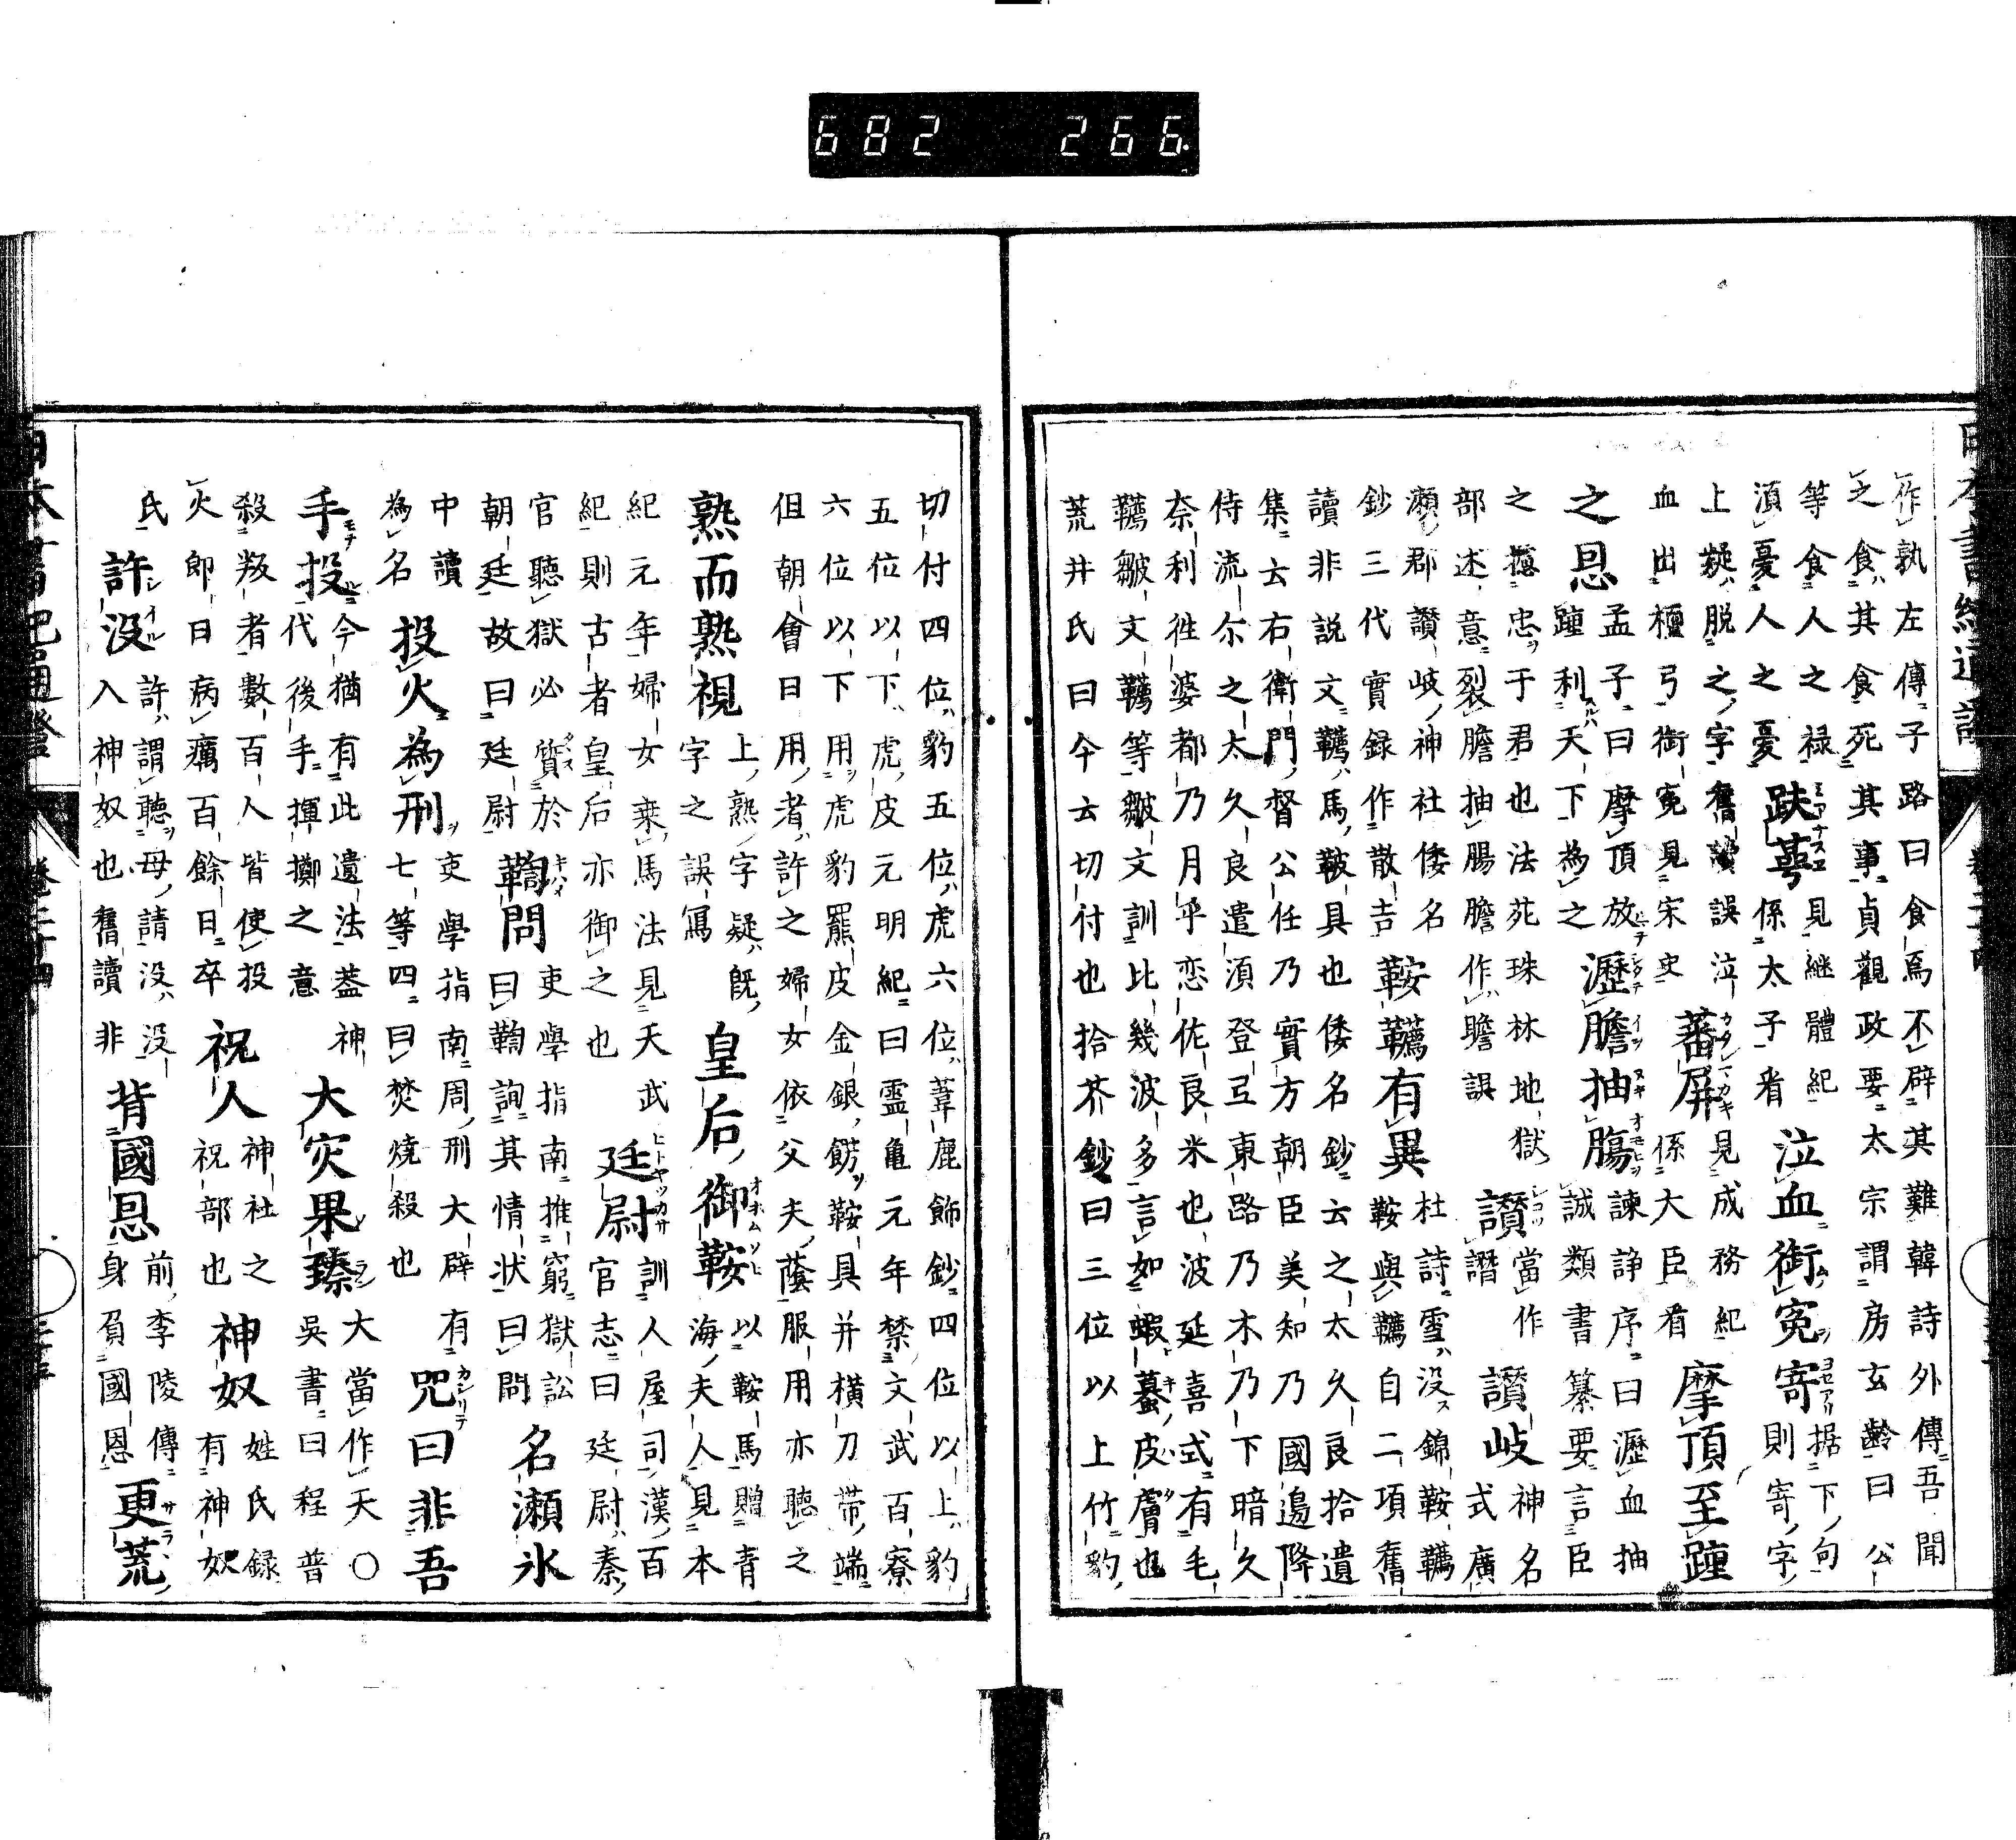 682 266
作孰左傳子路曰食焉不辟其難韓詩外傳吾聞
之食其食死其事貞觀政要太宗謂房玄齡曰公
等食人之禄見継體紀据下句
湏憂人之憂
趺萼
係太子看
泣血銜寃寄
則寄字
上凝脱之字舊讀誤泣
蕃屏
見成務紀
係大臣看
摩頂至踵
血出檀弓銜寃見宋史
之恩
孟子曰摩頂放
踵利天下為之
瀝膽抽膓
諫諍序曰瀝血抽
誠類書纂要言臣
之攄忠于君也法苑珠林地獄
部述意裂膽抽腸膽作瞻誤
讃
當作
譛
讃岐
神名
式廣
瀬郡讃岐神社倭名
鈔三代實録作散吉
鞍韉有異
杜詩雪没錦鞍韉
鞍與韉自二項舊
讀非説文韉馬鞁具也倭名鈔云之太久良拾遺
集云右衛門督公任乃實方朝臣美知乃國邊降
侍流尓之太久良遣湏登弖東路乃木乃下暗久
奈利徃婆都乃月乎恋佐良米也波延喜式有毛
韉皺文韉等皺文訓比幾波多言如蝦蟇皮膚也
荒井氏曰今云切付也拾芥鈔曰三位以上竹豹
切付四位豹五位虎六位葦鹿飾鈔四位以上豹
五位以下虎皮元明紀曰靈亀元年禁文武百寮
六位以下用虎豹羆皮金銀餝鞍具并横刀帶端
但朝會日用者許之婦女依父夫蔭服用亦聽之
熟而熟視
上熟字疑既
字之誤寫
皇后御鞍
以鞍馬贈青
海夫人見本
紀元年婦女乗馬法見天武
紀則古者皇后亦御之也
廷尉
訓人屋司漢百
官志曰廷尉秦
官聽獄必質於
朝廷故曰廷尉
鞫問
吏學指南推窮獄訟
曰鞫詢其情状曰問
名瀬氷
中讀
為名
投火為刑
吏學指南周刑大辟有
七等四曰焚燒殺也
咒曰非吾
手投
今猶有此遺法蓋神
代後手揮擲之意
大灾果臻
大當作天○
呉書曰程普
殺叛者數百人皆使投
火即日病癘百餘日卒
祝人
神社之
祝部也
神奴
姓氏録
有神奴
氏
許没
許謂聽母請没没
入神奴也舊讀非
背國恩
前李陵傳
身負國恩
更荒